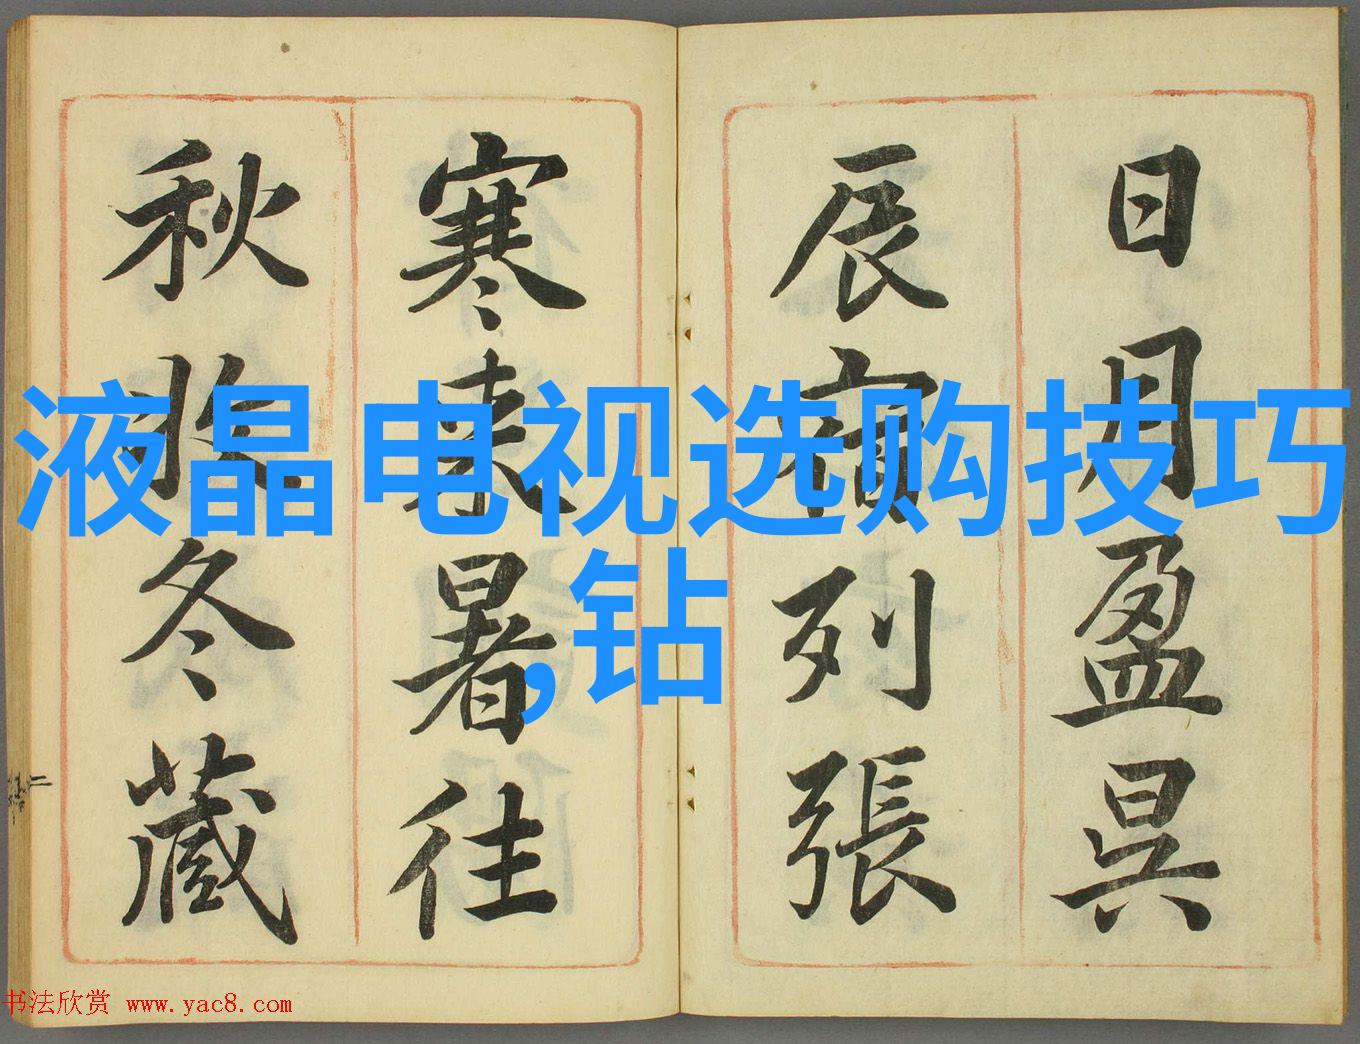 日月盈昃
辰宿列張
寒来暑往
秋收冬藏
液晶电视选购技巧
,钻
书法欣赏 www.yac8.com